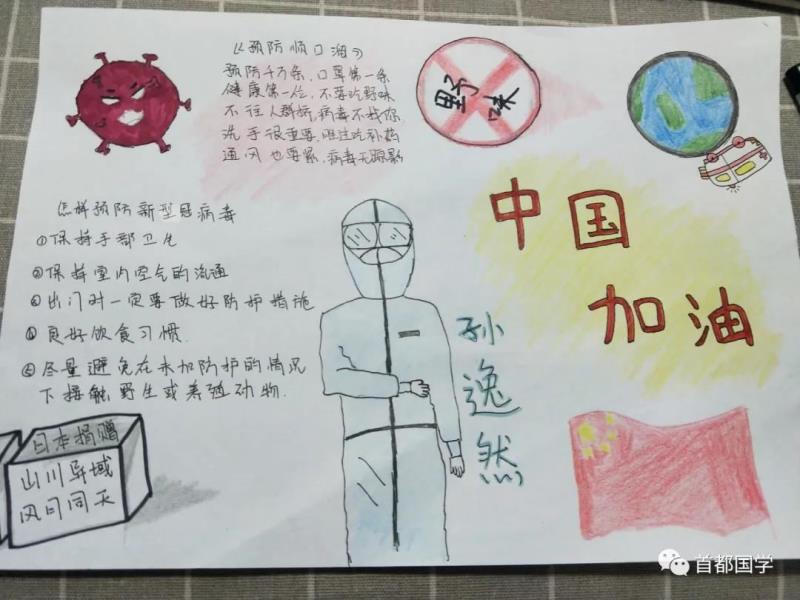 《预防顺口溜》
预防千万条，口罩第一条
健康第一位，不要吃野味
不往人群挤，病毒不找你
洗手很重要，胜过吃补药
通风也要紧，病毒无踪影
野味
中国
加油
怎样预防新型冠病毒
①保持手部卫生
②保持室内空气的流通
③出门时一定要做好防护措施
④良好饮食习惯.
⑤尽量避免在未加防护的情况
下接触野生或养殖动物.
孙逸然
日本捐赠
山川异域
风日同天
首都国学